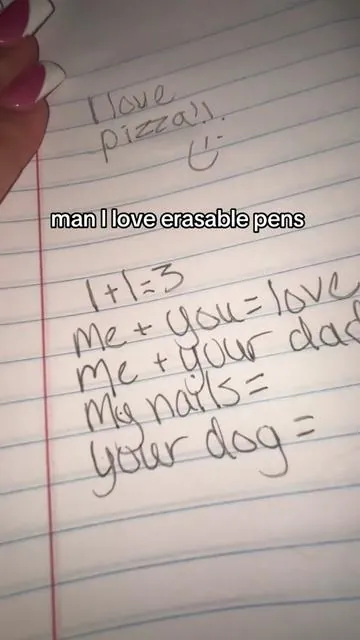 I love
pizza!!
man I love erasable pens
1+1=3
me + you = love
me + your dad
My nails =
your dog =